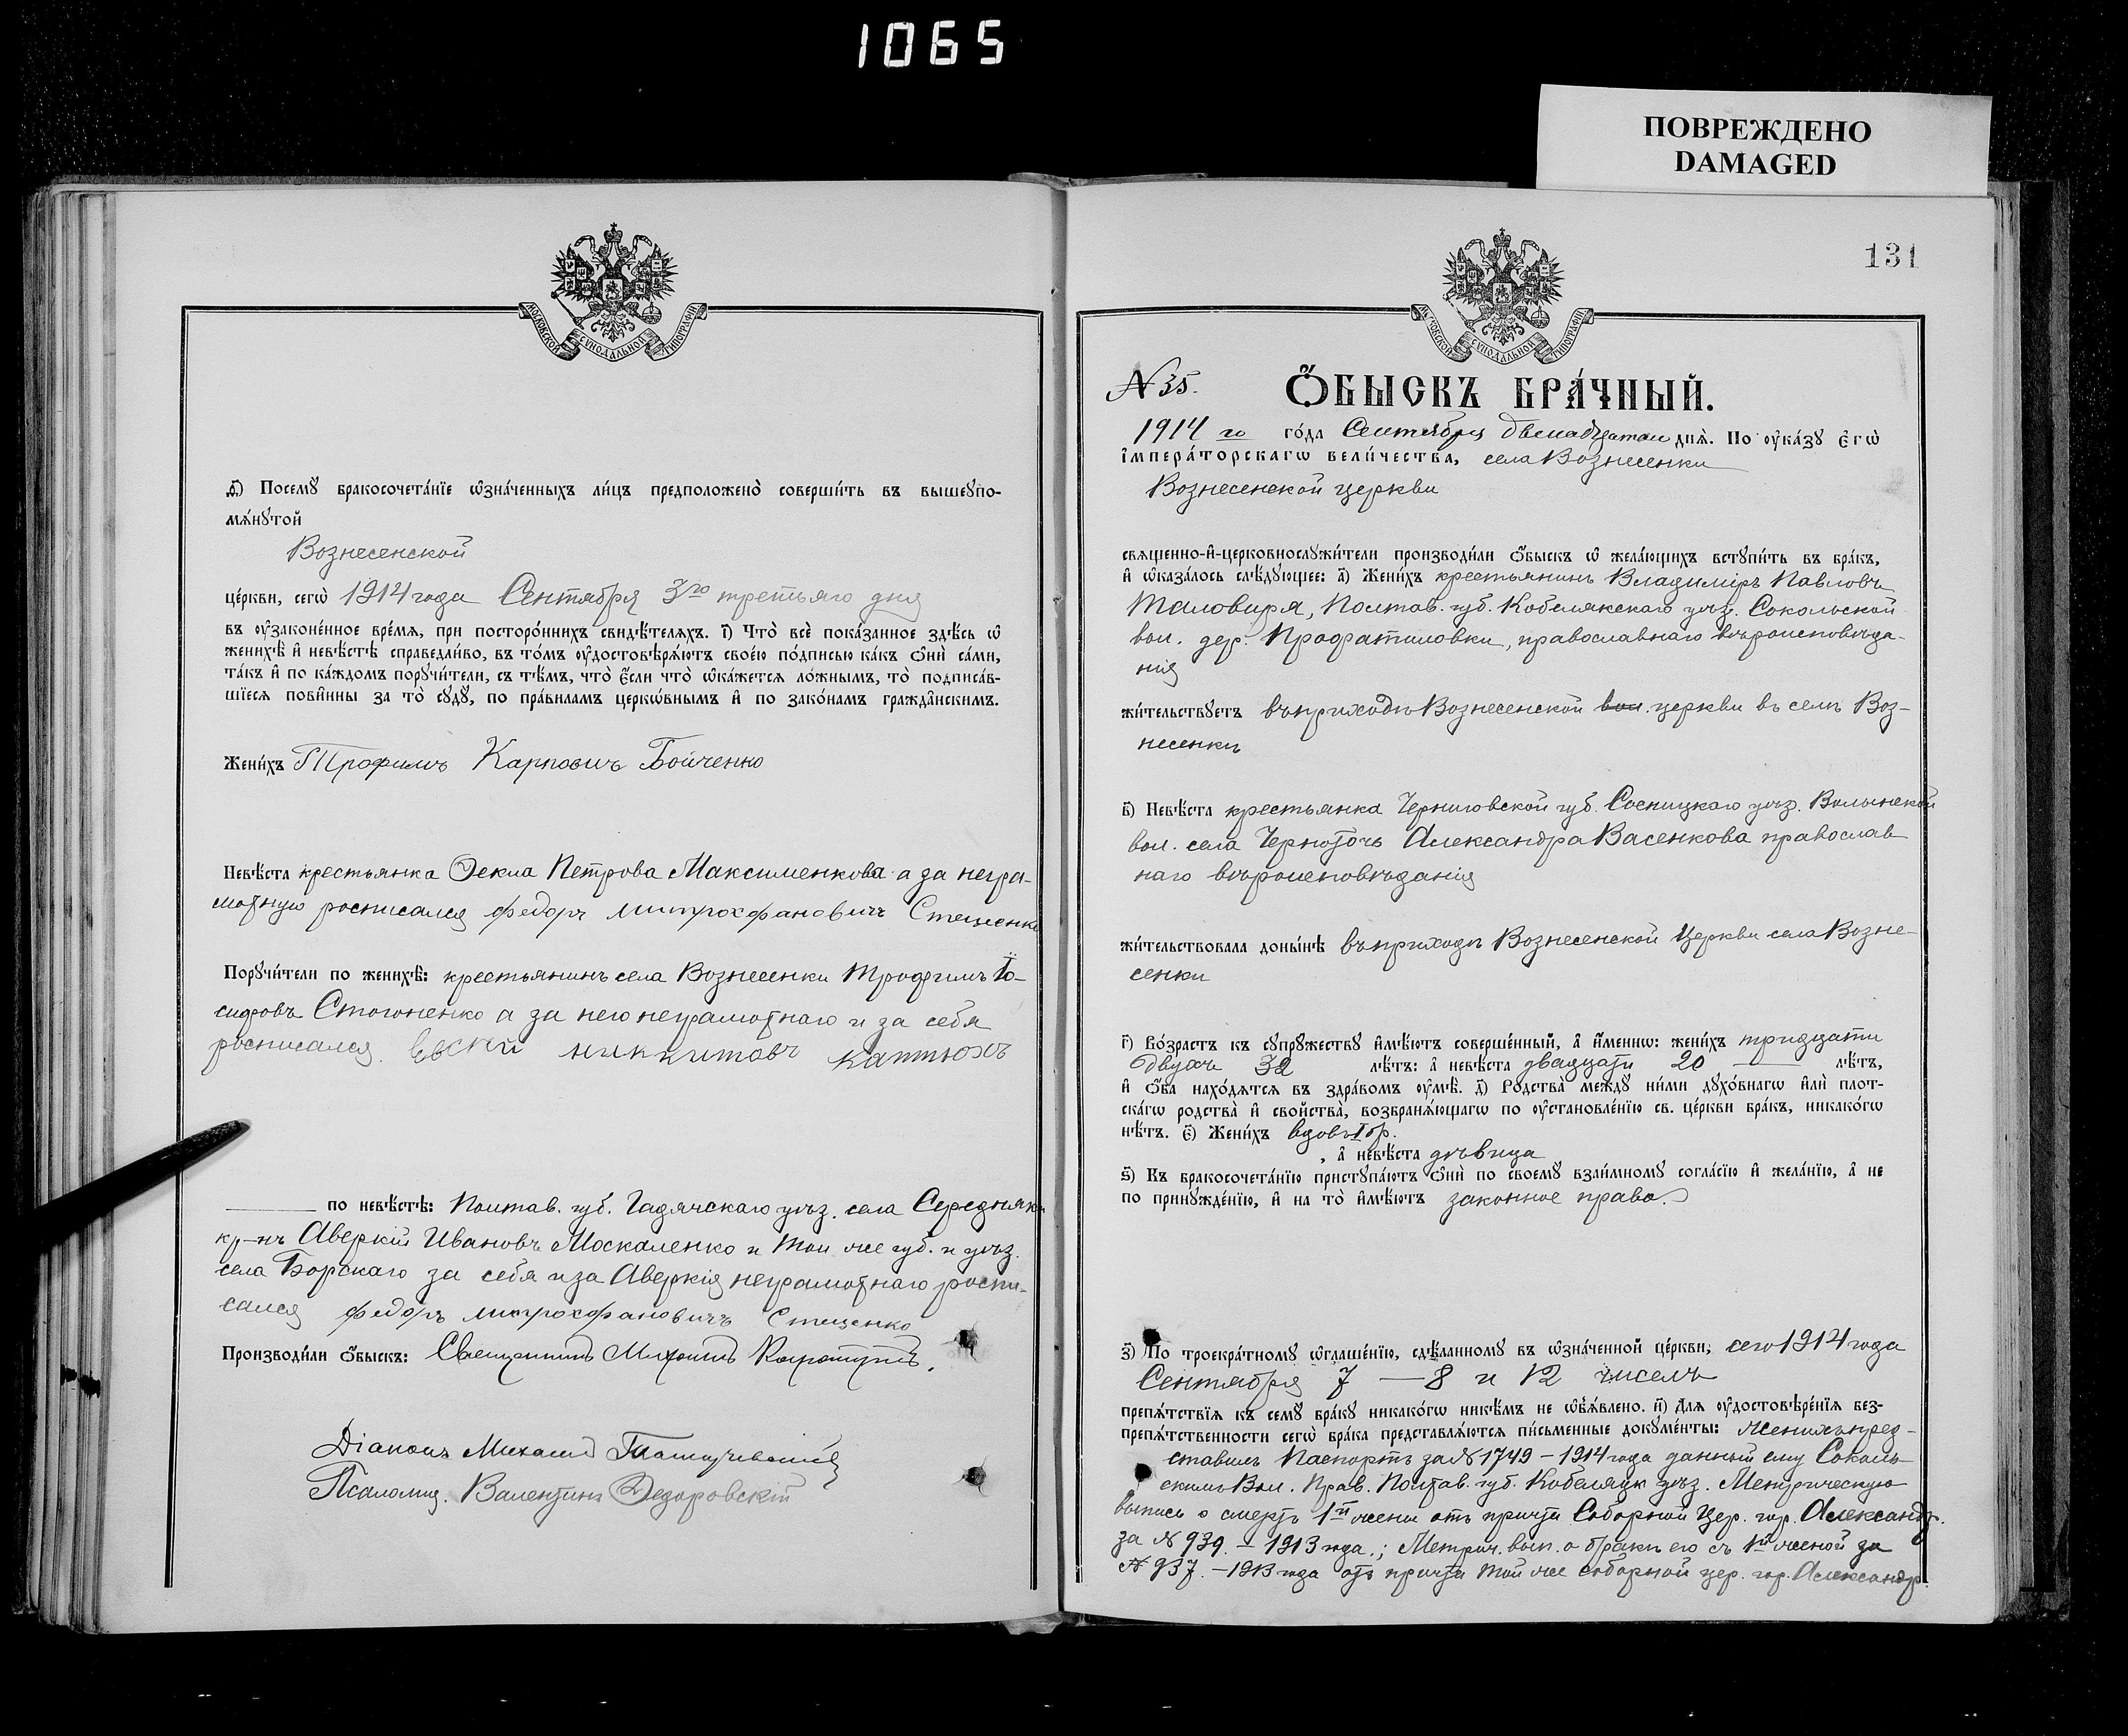 1065
ПОВРЕЖДЕНО
DAMAGED
МОСКОВСКОЙ СѴНОДАЛЬНОЙ ТИПОГРАФІИ
ѳ҃) Посемꙋ̀ бракосочета́нїе ѡ҆зна́ченныхъ ли́цъ предположено̀ соверши́ть въ вышеꙋпо-
мѧ́нꙋтой
Вознесенской
це́ркви, сегѡ̀ 1914 года Сентября 3го третьяго дня
въ ᲂу҆законе́нное вре́мѧ, при посторо́ннихъ свидѣ́телѧхъ. і҃) Что̀ всѐ пока́занное здѣ́сь ѡ҆
женихѣ̀ и҆ невѣ́стѣ справедли́во, въ то́мъ ᲂу҆достовѣрѧ́ютъ свое́ю по́дписью ка́къ ѻ҆нѝ са́ми,
та́къ и҆ по ка́ждомъ порꙋчи́тели, съ тѣ́мъ, что̀ є҆́сли что̀ ѡ҆ка́жетсѧ ло́жнымъ, то̀ подписа́в-
шїесѧ пови́нны за то̀ сꙋдꙋ̀, по пра́виламъ церкѡ́внымъ и҆ по зако́намъ гражда̂нскимъ.
Жени́хъ Трофимъ Карповичъ Бойченко
Невѣ́ста крестьянка Ѳекла Петрова Максименкова а за негра-
мотную росписался Федоръ Митрохфановичъ Стеценко
Порꙋчи́тели по женихѣ̀: крестьянинъ села Вознесенки Трофимъ Іо-
сифовъ Стогоненко а за него неграмотнаго и за себя
росписался никкитовъ каптюхъ
по невѣ́стѣ: Полтав. губ. Гадячскаго уѣз. села Середняки
кр-нъ Аверкій Ивановъ Москаленко и той же губ. и уѣз.
села Борскаго за себя и за Аверкія неграмотнаго роспи-
сался федоръ митрохфановичъ Стеценко
Производи́ли ѻ҆́быскъ: Священникъ Михаилъ
Діаконъ Михаилъ
Псаломщ. Валентинъ Ѳедоровскій
131
МОСКОВСКОЙ СѴНОДАЛЬНОЙ ТИПОГРАФІИ
N 35. Ѻ҆́БЫСКЪ БРА́ЧНЫЙ.
1914 го го́да Сентября двенадцатаго днѧ̀. По ᲂу҆ка́зꙋ є҆гѡ̀
і҆мпера́торскагѡ вели́чества, села Вознесенки
Вознесенской церкви
свѧщенно-и҆-церковнослꙋжи́тели производи́ли ѻ҆́быскъ ѡ҆ жела́ющихъ встꙋпи́ть въ бра́къ,
и҆ ѡ҆каза́лось слѣ́дꙋющее: а҃) Жени́хъ крестьянинъ Владиміръ Павловъ
Таловиря, Полтав. губ. Кобелякскаго уѣз. Сокольской
вол. дер. Профатиловки, православнаго вѣроисповѣда-
нія
жи́тельствꙋетъ въ приходѣ Вознесенской вол. церкви въ селѣ Воз-
несенкѣ
в҃) Невѣ́ста крестьянка Черниговской губ. Сосницкаго уѣз. Волынской
вол. села Чернотичъ Александра Васенкова православ
наго вѣроисповѣданія
жи́тельствовала доны́нѣ въ приходѣ Вознесенской Церкви села Возне-
сенки
г҃) Во́зрастъ къ сꙋпрꙋ́жествꙋ и҆мѣ́ютъ соверше́нный, а҆ и҆́менно: жени́хъ тридцати
двухъ 32 лѣ́тъ: а҆ невѣ́ста двадцати 20 лѣ́тъ,
и҆ ѻ҆́ба нахо́дѧтсѧ въ здра́вомъ ᲂу҆мѣ̀. д҃) Родства̀ междꙋ̀ ни́ми дꙋхо́внагѡ и҆лѝ плот-
ска́гѡ родства̀ и҆ свойства̀, возбранѧ́ющагѡ по ᲂу҆становле́нїю св. це́ркви бра́къ, никако́гѡ
нѣ́тъ. є҃) Жени́хъ вдовъ I бр.
, а҆ невѣ́ста дѣвица
ѕ҃) Къ бракосочета́нїю пристꙋпа́ютъ ѻ҆нѝ по своемꙋ̀ взаи́мномꙋ согла́сїю и҆ жела́нїю, а҆ не
по принꙋжде́нїю, и҆ на то̀ и҆мѣ́ютъ законное право.
з҃) По троекра́тномꙋ ѡ҆глаше́нїю, сдѣ́ланномꙋ въ ѡ҆зна́ченной це́ркви, сего 1914 года
Сентября 7 — 8 и 12 числъ
препѧ́тствїѧ къ семꙋ̀ бра́кꙋ никако́гѡ никѣ́мъ не ѡ҆б̾ѧ́влено. и҃) Длѧ ᲂу҆достовѣре́нїѧ без-
препѧ́тственности сегѡ̀ бра́ка представлѧ́ютсѧ пи́сьменные докꙋме́нты: Женихъ пред-
ставилъ Паспортъ за N 1749 – 1914 года данный ему Соколь-
скимъ Вол. Прав. Полтав. губ. Кобеляцк уѣз. Метрическую
выпись о смерти 1й жены отъ причта Соборной Цер. гор. Александр.
за N 939. – 1913 года.; Метрич. вып. о бракѣ его съ 1й женой за
N 937. – 1913 года отъ причта той же соборной цер. гор. Александр.